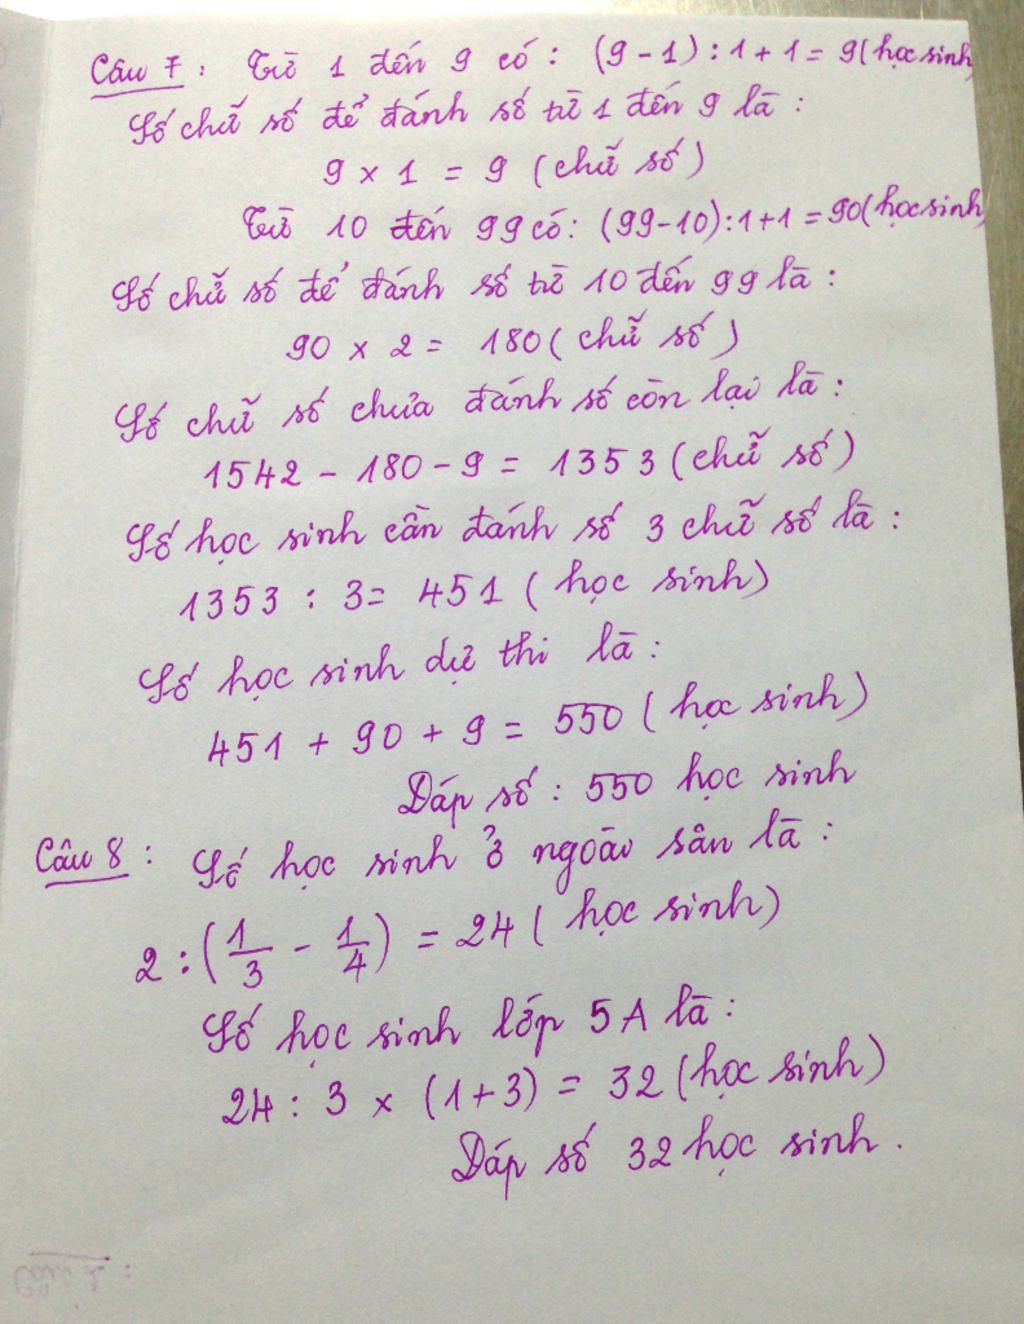 Câu 7: Từ 1 đến 9 có: (9-1):1+1=9(học sinh)
Số chữ số để đánh số từ 1 đến 9 là:
9 x 1 = 9 (chữ số)
Từ 10 đến 99 có: (99-10):1+1=90(học sinh)
Số chữ số để đánh số từ 10 đến 99 là:
90 x 2 = 180 (chữ số)
Số chữ số chưa đánh số còn lại là:
1542 - 180 - 9 = 1353 (chữ số)
Số học sinh cần đánh số 3 chữ số là:
1353 : 3 = 451 (học sinh)
Số học sinh dự thi là:
451 + 90 + 9 = 550 (học sinh)
Đáp số: 550 học sinh
Câu 8: Số học sinh ở ngoài sân là:
2 : (1/3 - 1/4) = 24 (học sinh)
Số học sinh lớp 5A là:
24 : 3 x (1+3) = 32 (học sinh)
Đáp số 32 học sinh.